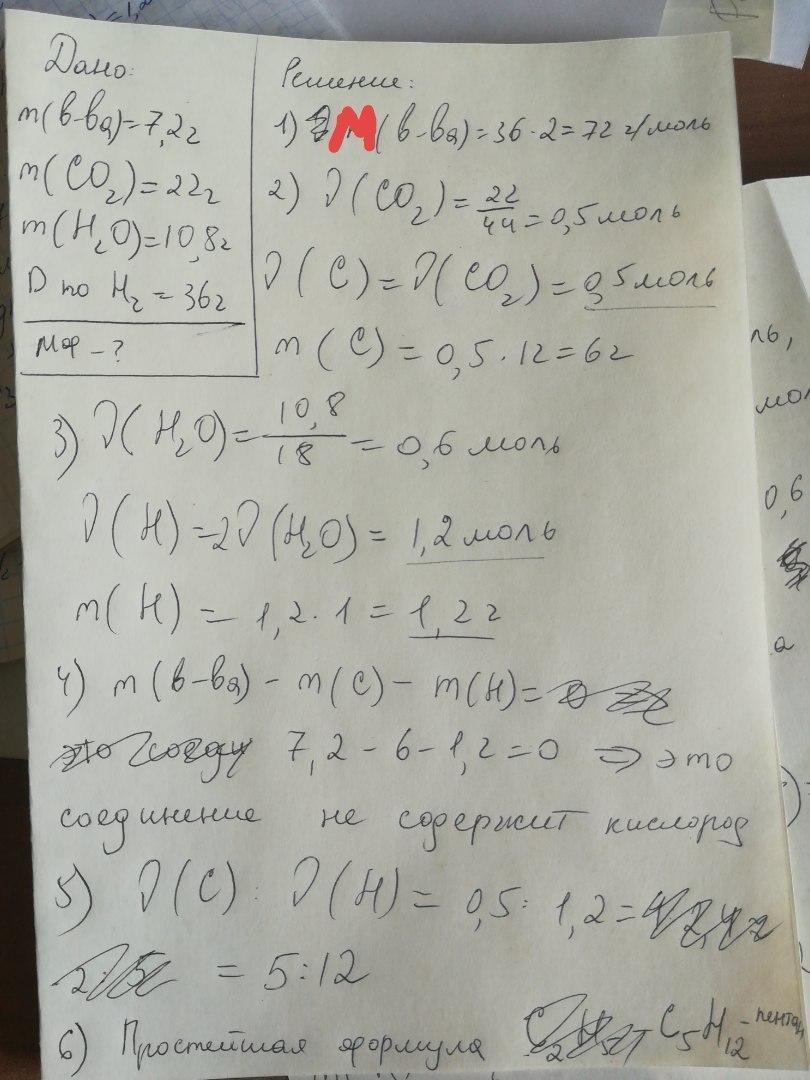 Дано:
m(в-ва)=7,2г
m(CO₂)=22г
m(H₂O)=10,8г
D по H₂ = 36г
Мф - ?
Решение:
1) M(в-ва)=36·2=72 г/моль
2) ν(CO₂)=22/44=0,5моль
ν(C)=ν(CO₂)=0,5моль
m(C)=0,5·12=6г
3) ν(H₂O)=10,8/18=0,6 моль
ν(H)=2ν(H₂O)=1,2моль
m(H)=1,2·1=1,2г
4) m(в-ва)-m(C)-m(H)=
7,2-6-1,2=0 ⇒ это
соединение не содержит кислород
5) ν(C):ν(H)=0,5:1,2=
=5:12
6) Простейшая формула C₅H₁₂-пентан
ль,
мол
0,6
а